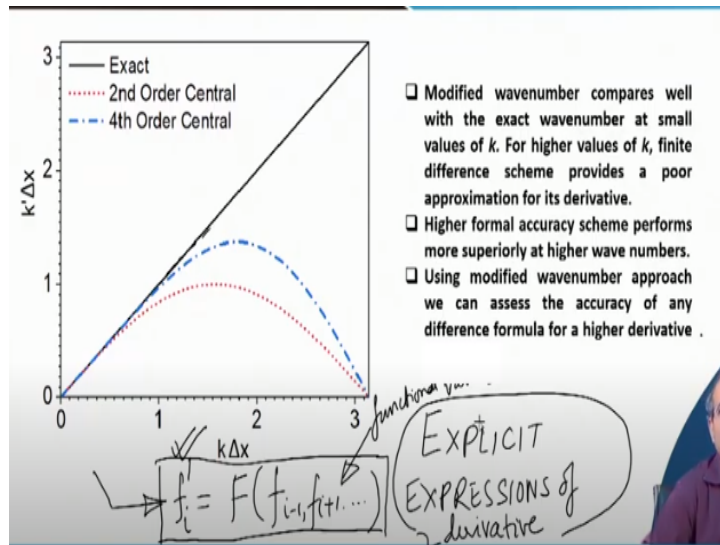 3
2
1
0
k'Δx
Exact
2nd Order Central
4th Order Central
0
1
2
3
kΔx
❑ Modified wavenumber compares well
with the exact wavenumber at small
values of k. For higher values of k, finite
difference scheme provides a poor
approximation for its derivative.
❑ Higher formal accuracy scheme performs
more superiorly at higher wave numbers.
❑ Using modified wavenumber approach
we can assess the accuracy of any
difference formula for a higher derivative .
f'i = F(fi-1, fi+1....)
functional
EXPLICIT
EXPRESSIONS of
derivative